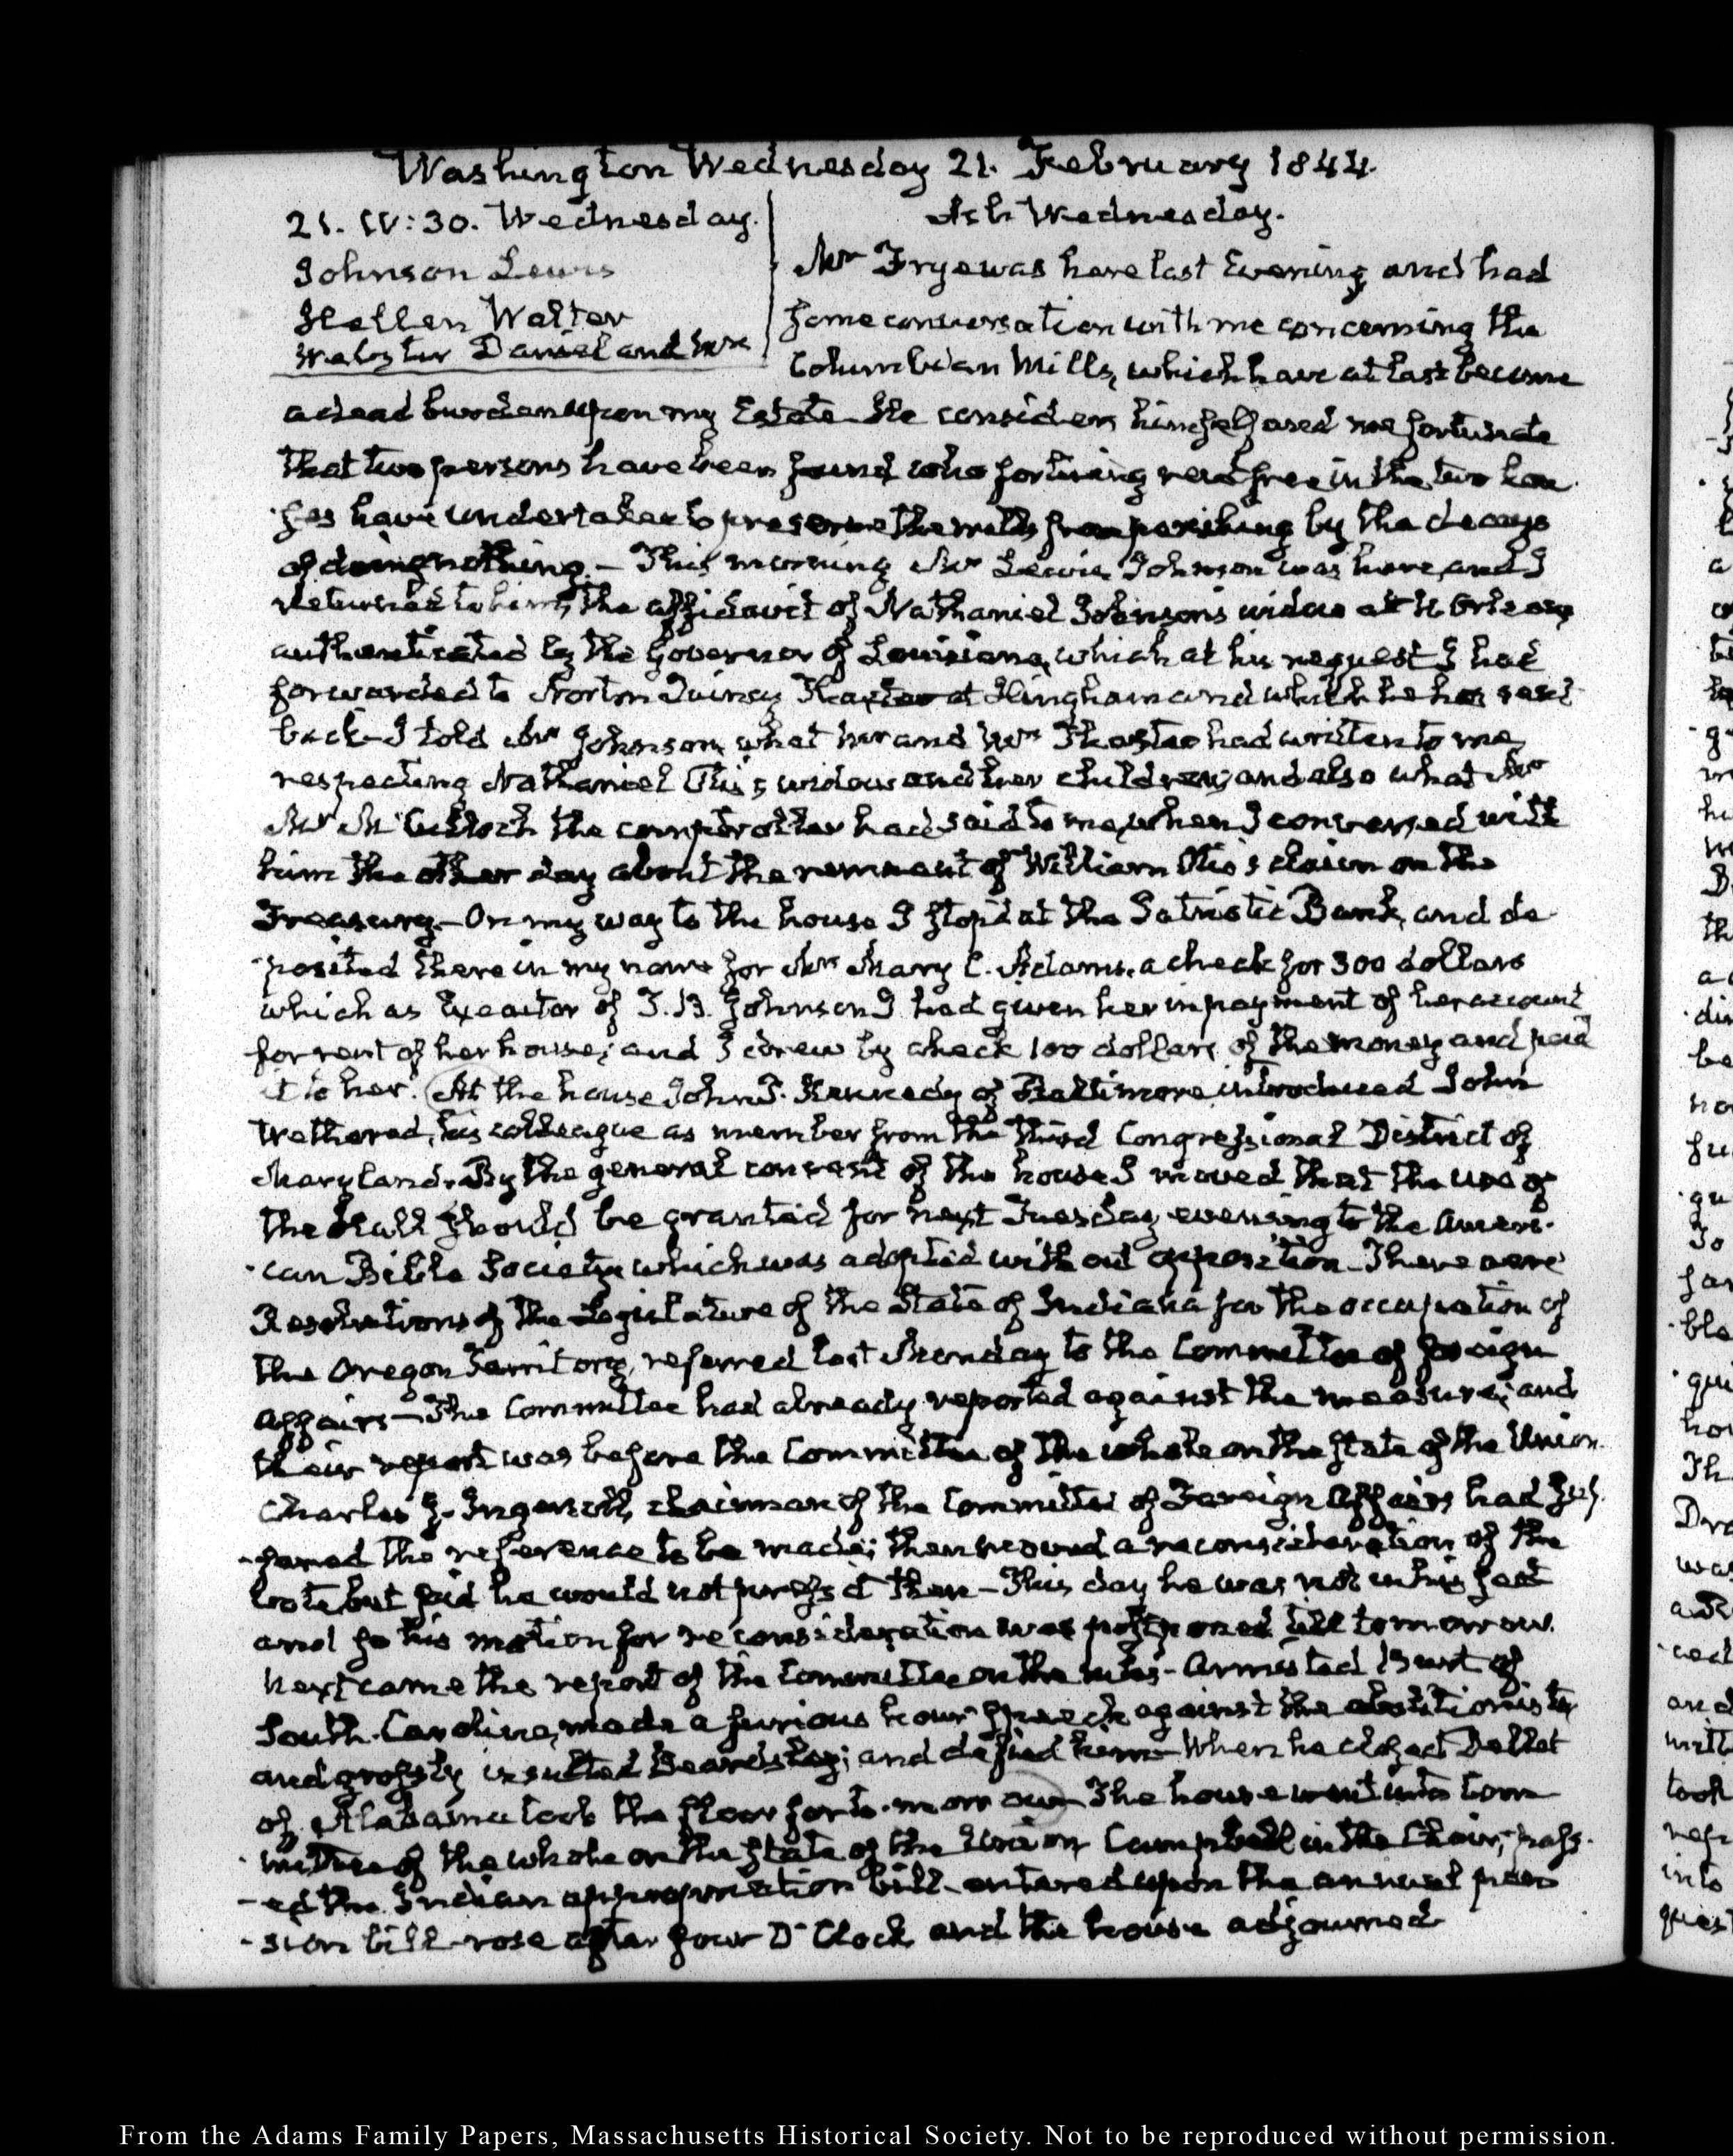 Washington Wednesday 21. February 1844.
21. IV:30. Wednesday.
Johnson Lewis
Hellen Walter
Webster Daniel and Mrs
Ash Wednesday.
Mr Frye was here last Evening and had
some conversation with me concerning the
Columbian Mills, which have at last become
a dead burden upon my Estate. He considers himself and me fortunate
that two persons have been found who for living rent free in the two hou
-ses have undertaken to preserve the mills from perishing by the decays
of doing nothing.— This morning Mr Lewis Johnson was here, and I
returned to him, the affidavit of Nathaniel Johnson's widow at N. Orleans
authenticated by the Governor of Louisiana, which at his request I had
forwarded to Norton Quincy Thaxter at Hingham and which he has sent
back— I told Mr Johnson, what Mr and Mrs Thaxter had written to me,
respecting Nathaniel Otis's widow and her children; and also what Mr
Mr McCulloch the comptroller had said to me, when I conversed with
him the other day about the remnant of William Otis's claim on the
Treasury.— On my way to the house I stop'd at the Patriotic Bank, and de
-posited there in my name for Mrs Mary C. Adams, a check for 300 dollars
which as Executor of T. B. Johnson I had given her in payment of her account
for rent of her house; and I drew by check 100 dollars of the money and paid
it to her. At the house John P. Kennedy of Baltimore introduced John
Wethered, his colleague as member from the third Congressional District of
Maryland. By the general consent of the house I moved that the use of
the Hall should be granted for next Tuesday evening to the Ameri-
-can Bible Society which was adopted without opposition— There were
Resolutions of the Legislature of the State of Indiana for the occupation of
the Oregon Territory, referred last Monday to the Committee of foreign
affairs— The Committee had already reported against the measure; and
their report was before the Committee of the whole on the state of the Union.
Charles J. Ingersoll, chairman of the Committee of Foreign Affairs had suf-
-fered the reference to be made; then moved a reconsideration of the
vote, but said he would not press it then— This day he was not in his seat
and so his motion for reconsideration was postponed till tomorrow.
Next came the report of the Committee on the rules— Armisted Burt of
South-Carolina, made a furious hour speech against the abolitionists,
and grossly insulted Beardsley; and defied him— When he closed Dellet
of Alabama took the floor for to-morrow— The house went into Com
-mittee of the whole on the state of the Union Campbell in the Chair, pass-
-ed the Indian appropriation bill— entered upon the annual pen
-sion bill— rose after four O'Clock and the house adjourned
From the Adams Family Papers, Massachusetts Historical Society. Not to be reproduced without permission.